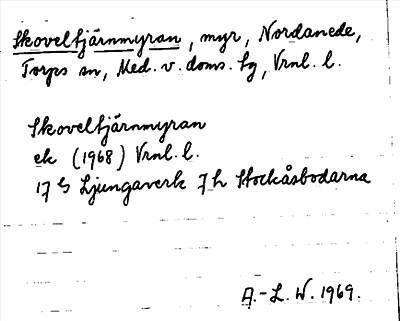 Skoveltjärnmyran, myr, Nordanede,
Torps sn, Med. v. doms. tg, Vrnl. l.
Skoveltjärnmyran
ek (1968) Vrnl. l.
17 G Ljungaverk 7 h Stockåsbodarna
A.-L. W. 1969.